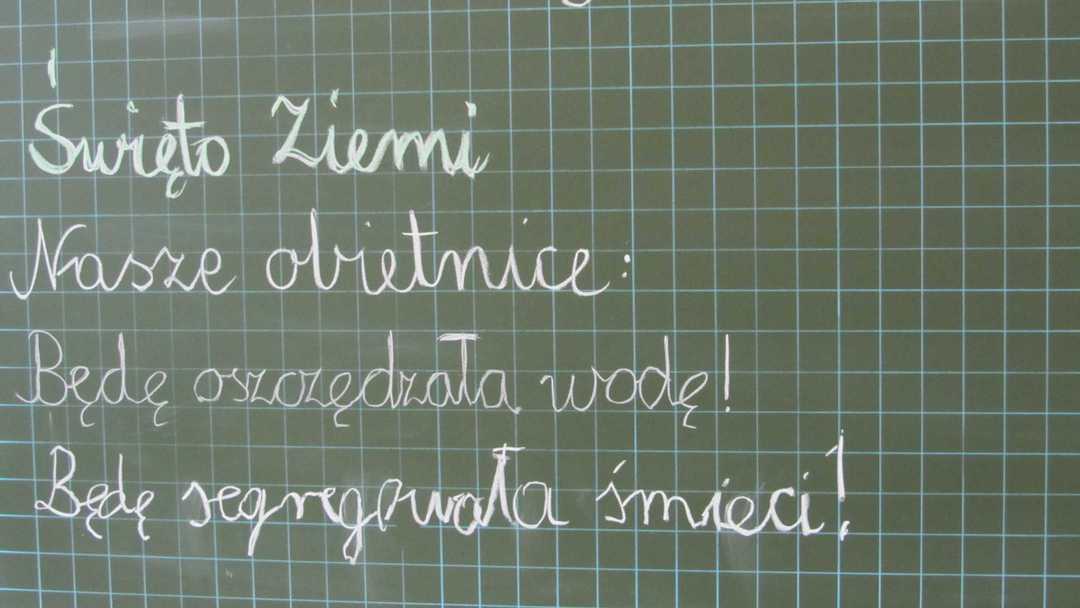 Święto Ziemi
Nasze obietnice:
Będę oszczędzała wodę!
Będę segregowała śmieci!